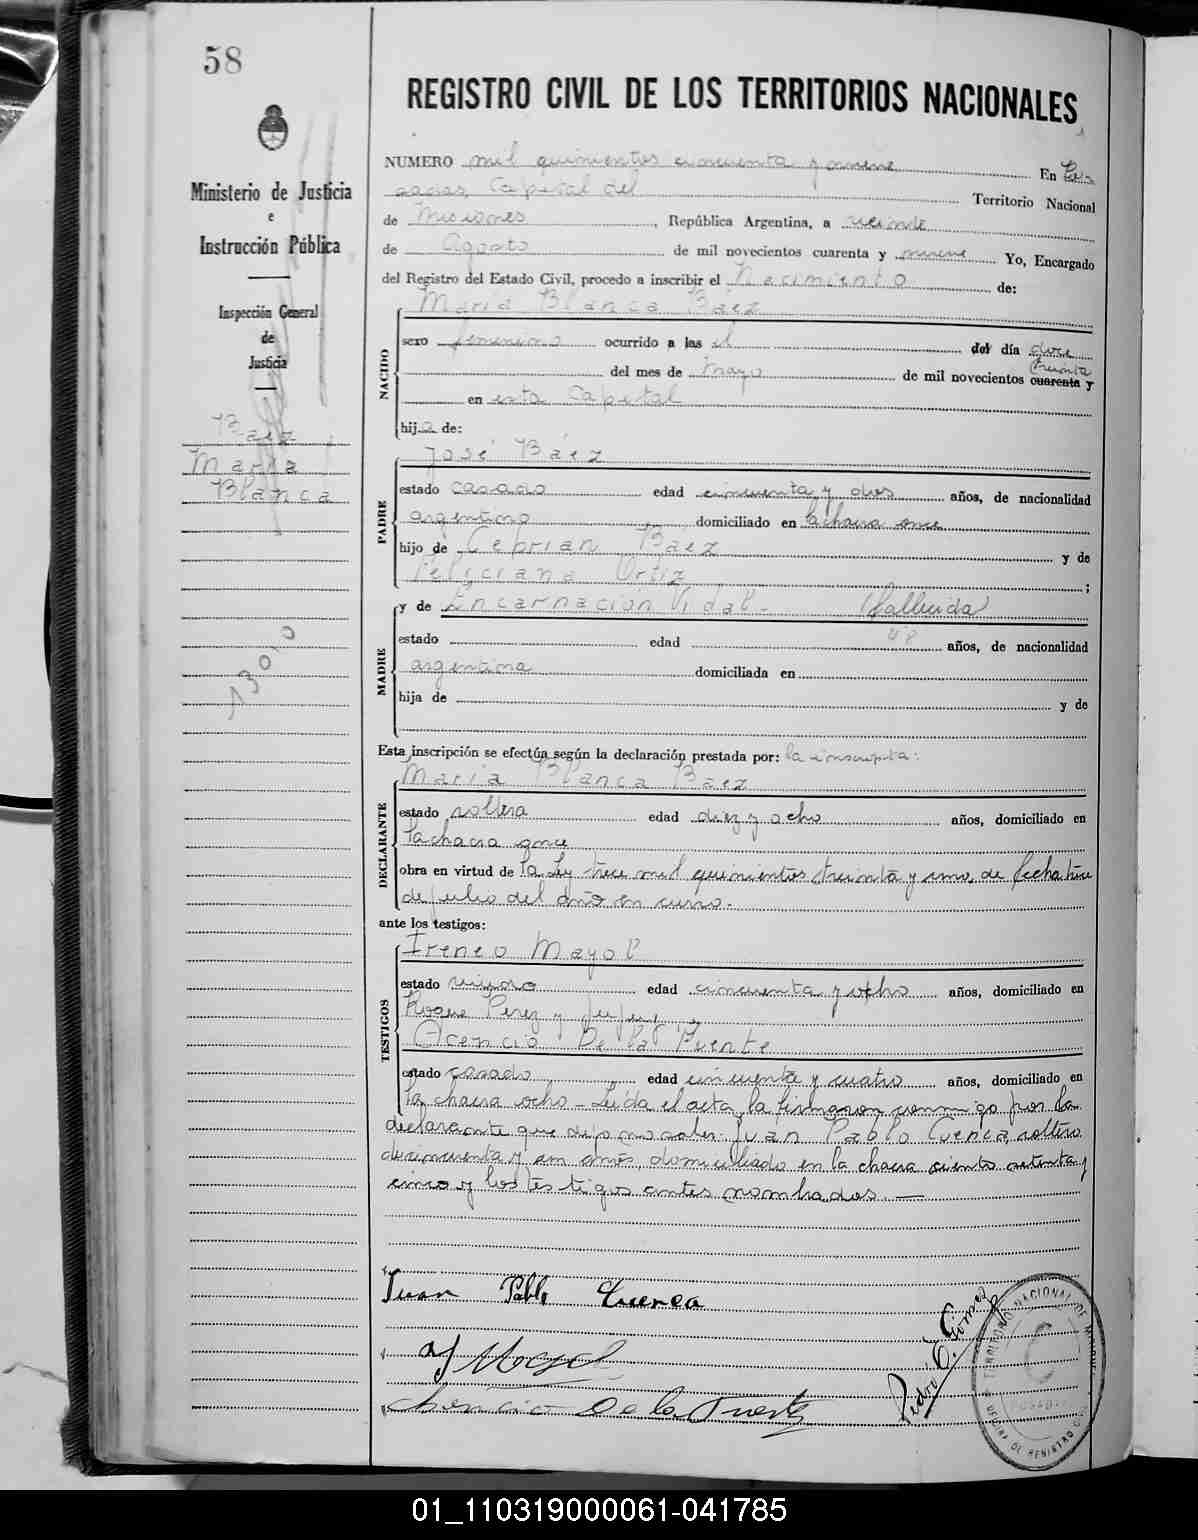 58
REGISTRO CIVIL DE LOS TERRITORIOS NACIONALES
Ministerio de Justicia
e
Instrucción Pública
Inspección General
de
Justicia
Baez
Maria
Blanca
NUMERO mil quinientos cincuenta y nueve En Posa
adas, Capital del Territorio Nacional
de Misiones, República Argentina, a veinte
de Agosto de mil novecientos cuarenta y nueve Yo, Encargado
del Registro del Estado Civil, procedo a inscribir el Nacimiento de:
NACIDO
Maria Blanca Báez
sexo femenino ocurrido a las el del día doce
treinta
del mes de Mayo de mil novecientos cuarenta y
en esta Capital
hija de:
PADRE
José Báez
estado casado edad cincuenta y dos años, de nacionalidad
argentino domiciliado en la chacra once
hijo de Ceprian Báez y de
Feliciana Ortiz ;
MADRE
y de Encarnación Vidal - (fallecida)
estado edad años, de nacionalidad
argentina domiciliada en
hija de y de
Esta inscripción se efectúa según la declaración prestada por: la inscripta:
DECLARANTE
Maria Blanca Baez
estado soltera edad diez y ocho años, domiciliado en
la chacra once
obra en virtud de la Ley trece mil quinientos treinta y uno, de fecha
de julio del año en curso.
ante los testigos:
TESTIGOS
Ireneo Mayol
estado viudo edad cincuenta y ocho años, domiciliado en
Roque Perez y Jujuy
Acencio De la Puente
estado casado edad cincuenta y cuatro años, domiciliado en
la chacra ocho - Leída el acta, la firmaron conmigo por la
declarante que dijo no saber: Juan Pablo Cuenca, soltero
de cincuenta y un años, domiciliado en la chacra ciento setenta y
cinco y los testigos antes nombrados. —
Juan Pablo Cuenca
Mayol
Acencio De la Puente
Pedro E. Gómez
TERRITORIO NACIONAL DE MISIONES
POSADAS
OFICINA DE REGISTRO CIVIL
01_110319000061-041785